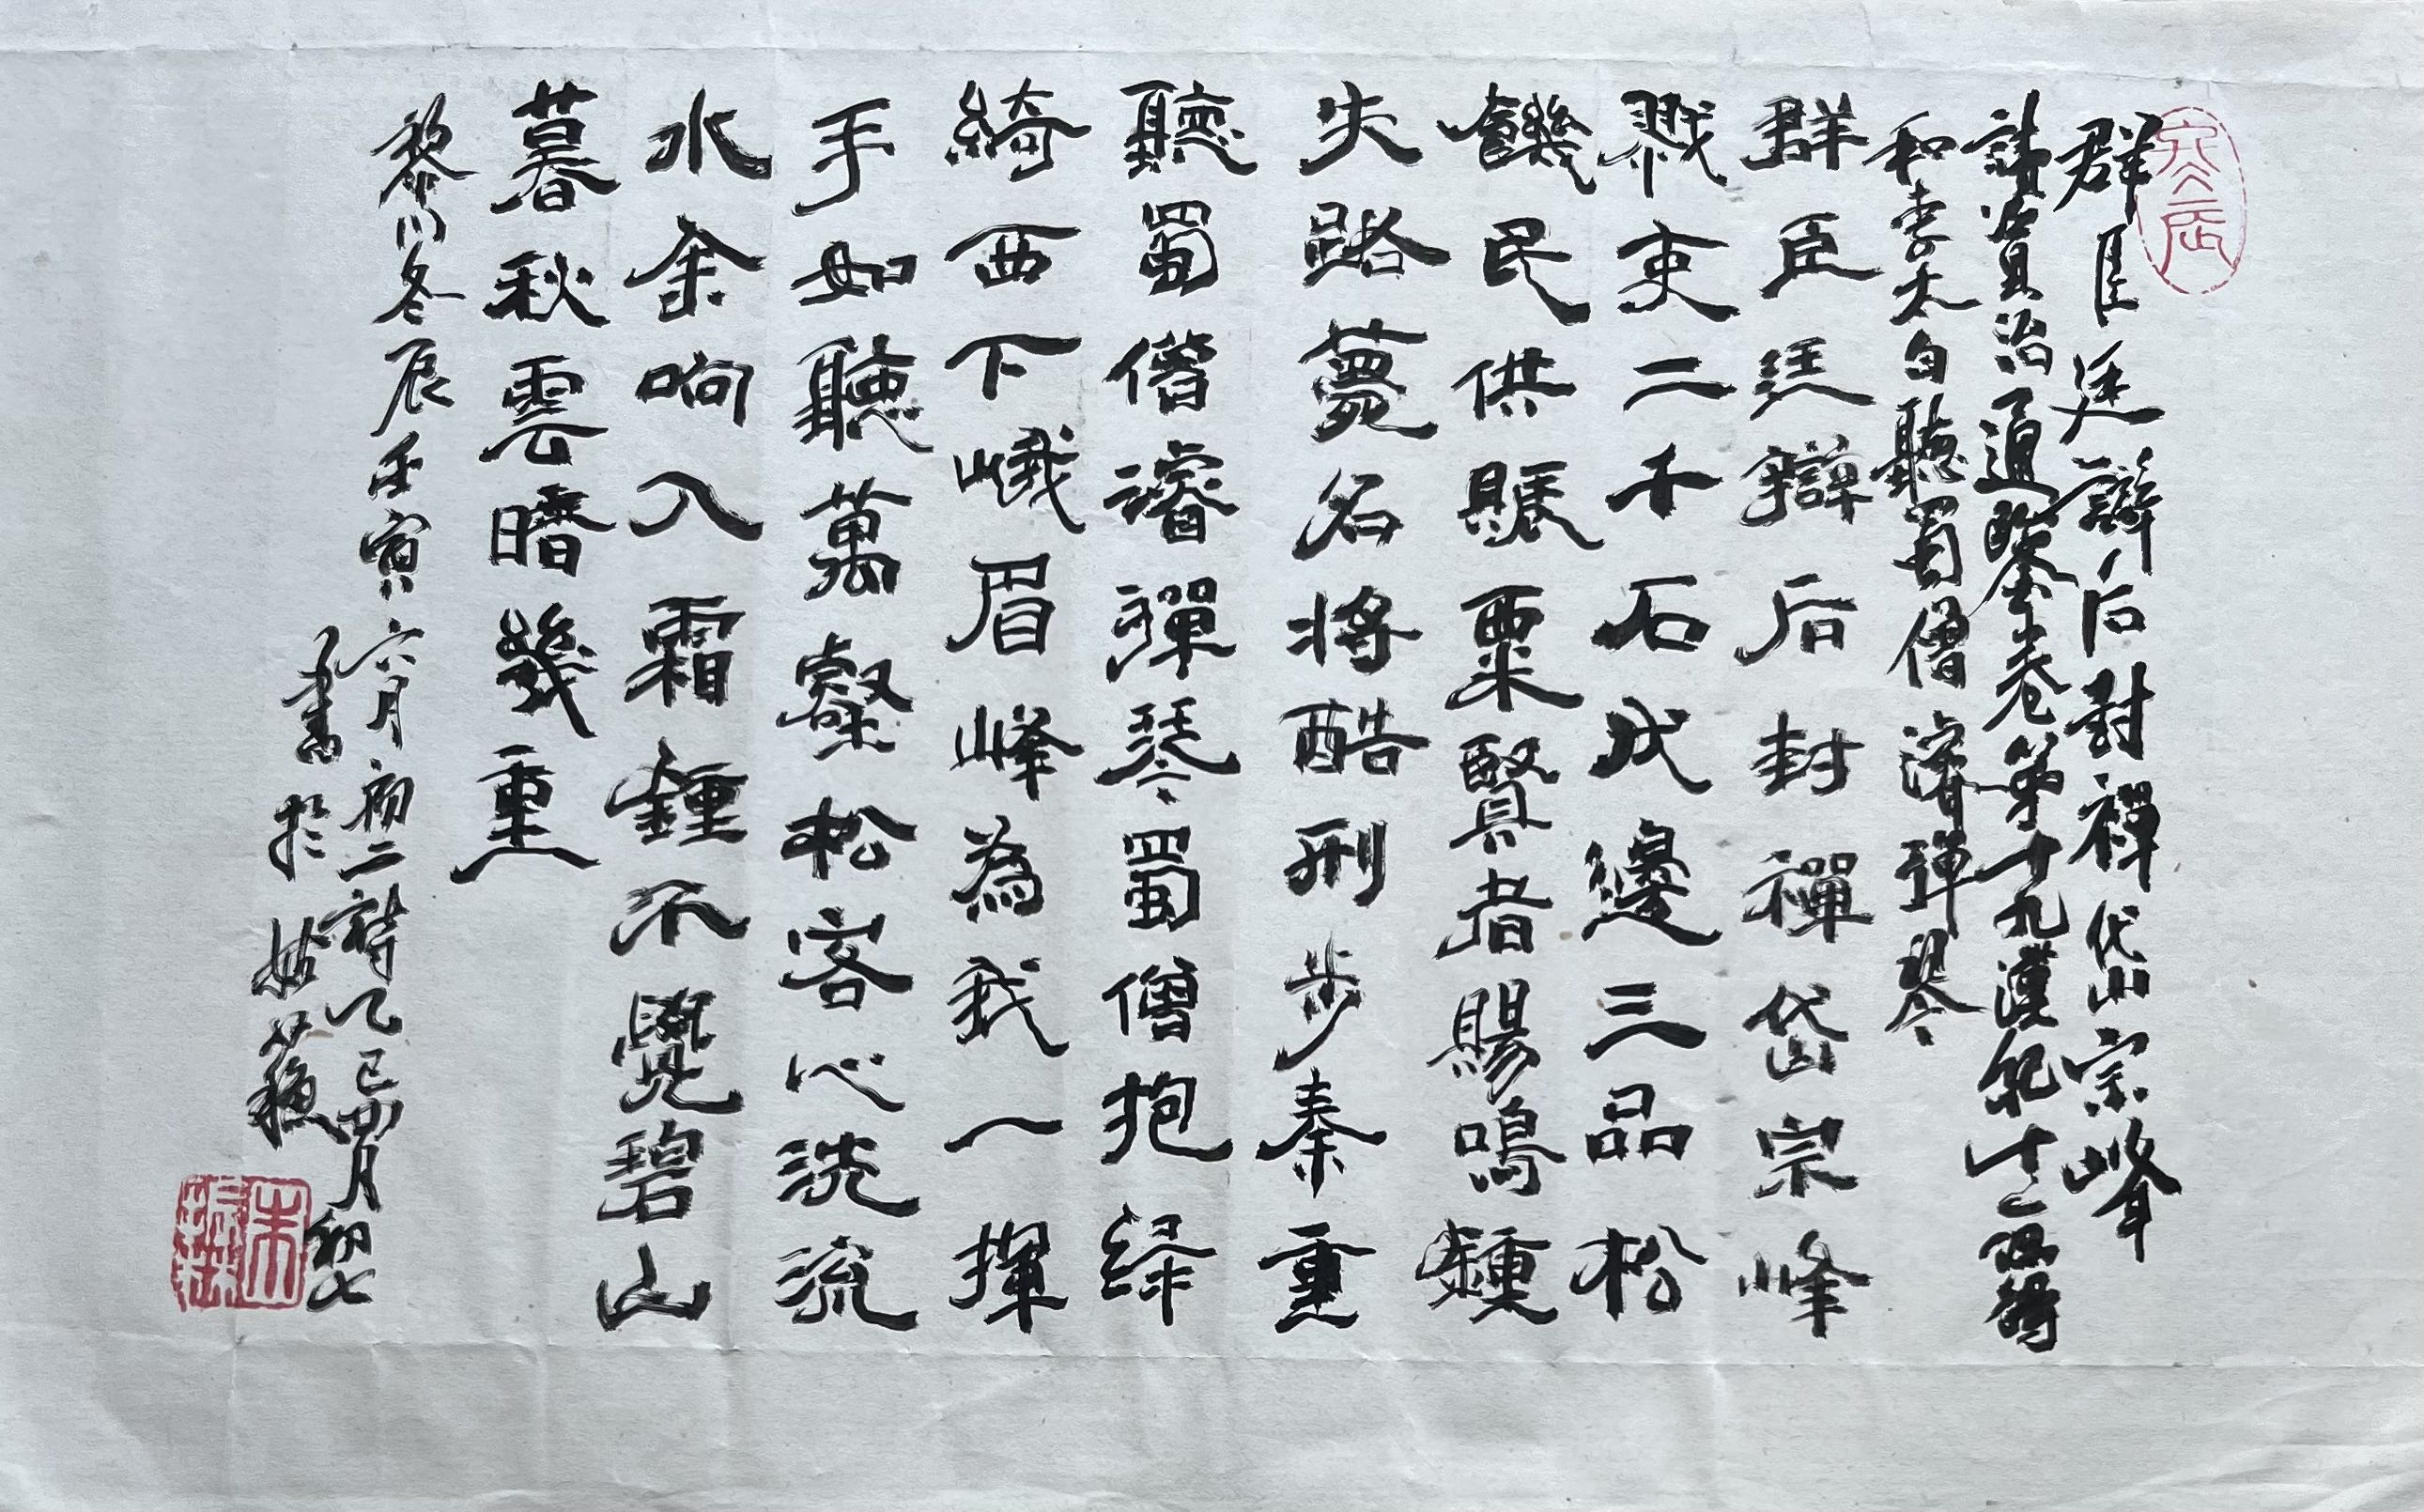 群臣廷辯后封禪岱宗峰
讀資治通鑒卷第十九漢紀十一偶得
和李太白聽蜀僧濬彈琴
群臣廷辯后封禪岱宗峰
戮吏二千石戍邊三品松
饑民供賑粟賢者賜鳴鍾
失路薨名將酷刑步秦重
聽蜀僧濬彈琴蜀僧抱绿
綺西下峨眉峰為我一揮
手如聽萬壑松客心洗流
水余响入霜鍾不覺碧山
暮秋雲暗幾重
黎川冬辰壬寅六月初二詩乙巳四月初七
書於姑蘇